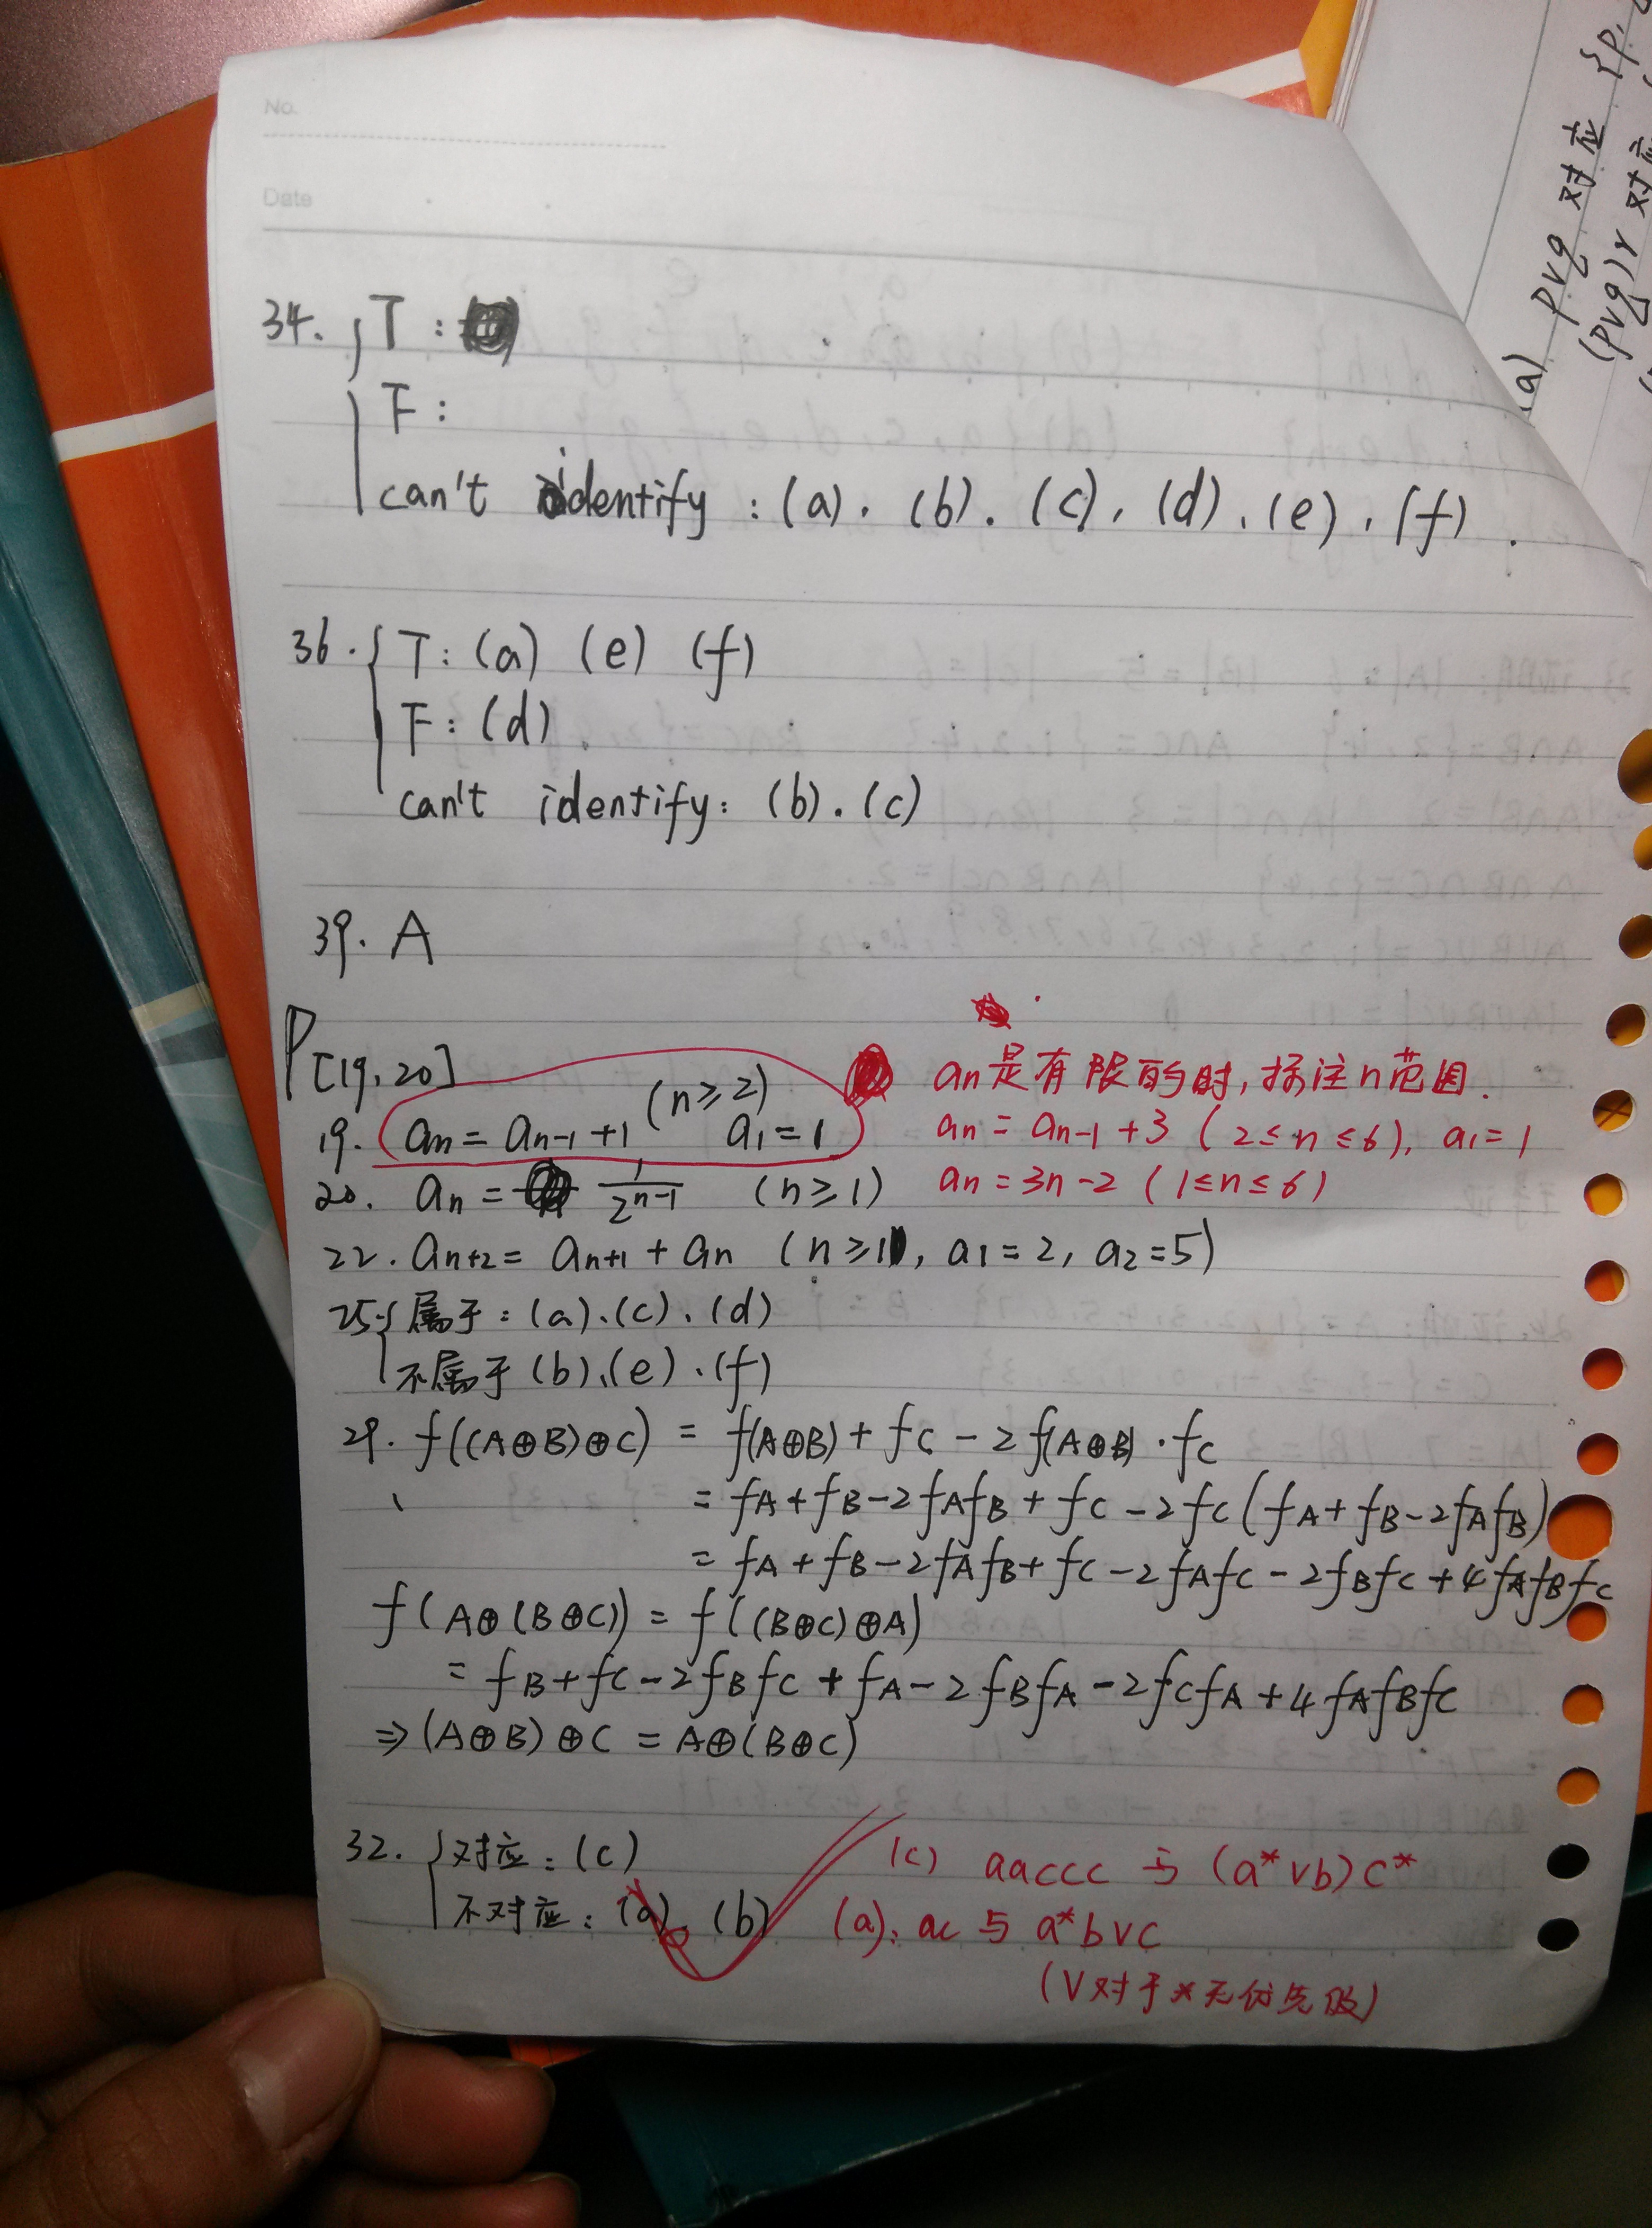 No.
Date
34. T:
F:
can't identify: (a). (b). (c). (d). (e). (f).
36. { T: (a) (e) (f)
F: (d)
can't identify: (b). (c)
39. A
P[19,20]
19. an = an-1 + 1 (n≥2) a1 = 1
an是有限的时,标注n范围.
an = an-1 + 3 (2≤n≤6), a1 = 1
20. an = 1/2^(n-1) (n≥1)
an = 3n-2 (1≤n≤6)
22. an+2 = an+1 + an (n≥1, a1=2, a2=5)
25. { 属于: (a).(c).(d)
不属于 (b).(e).(f)
29. f((A⊕B)⊕C) = f(A⊕B) + fC - 2f(A⊕B)·fC
= fA + fB - 2fAfB + fC - 2fC(fA + fB - 2fAfB)
= fA + fB - 2fAfB + fC - 2fAfC - 2fBfC + 4fAfBfC
f(A⊕(B⊕C)) = f((B⊕C)⊕A)
= fB + fC - 2fBfC + fA - 2fBfA - 2fCfA + 4fAfBfC
⇒ (A⊕B)⊕C = A⊕(B⊕C)
32. { 对应: (c)
不对应: (a). (b)
(c) aaccc 与 (a*∨b)c*
(a): ac 与 a*b∨c
(∨对于*无优先级)
(a) p∨q 对应 {p,
(p∨q)r 对应